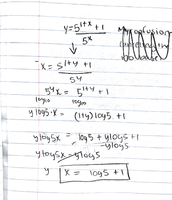 y = 5^{1+x} + 1
5^x
x = 5^{1+y} + 1
5^y
5^y x = 5^{1+y} + 1
log10 log10
y log5·x = (1+y) log5 . 1
y log5x = log5 + y log5 + 1
- y log5
y log5x - y log5
y x = log5 + 1